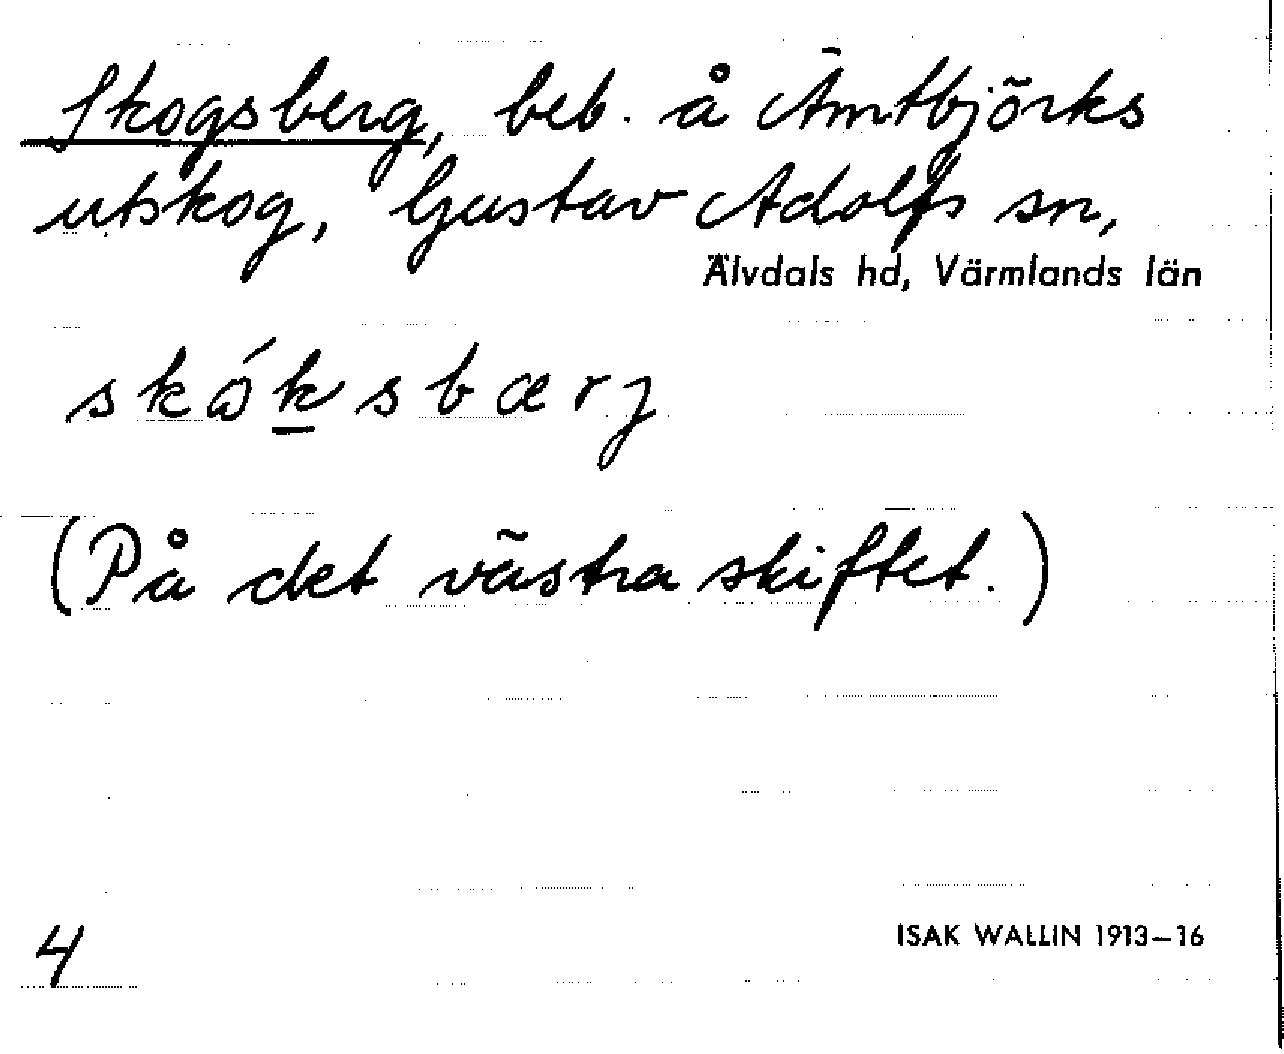 Skogsberg, beb. å Ämtbjörks
utskog, Gustav Adolfs sn,
Älvdals hd, Värmlands län
skɷ́ksbærj
(På det västra skiftet.)
4
ISAK WALLIN 1913–16